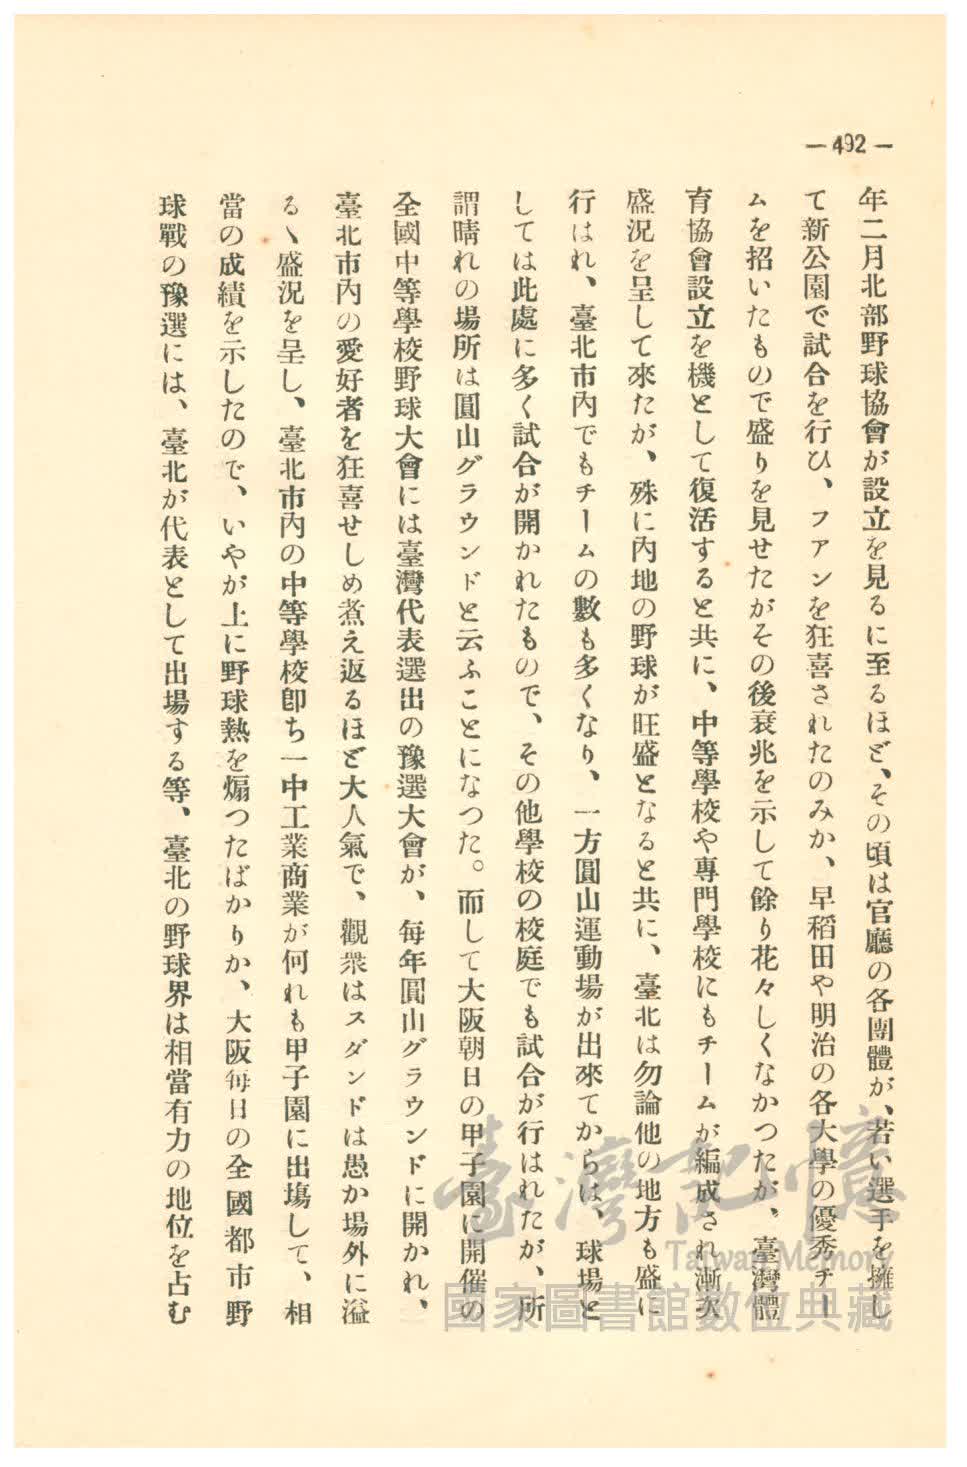 — 492 —
年二月北部野球協會が設立を見るに至るほど、その頃は官廳の各團體が、若い選手を擁し
て新公園で試合を行ひ、フアンを狂喜されたのみか、早稻田や明治の各大學の優秀チー
ムを招いたもので盛りを見せたがその後衰兆を示して餘り花々しくなかつたが、臺灣體
育協會設立を機として復活すると共に、中等學校や專門學校にもチームが編成され漸次
盛況を呈して來たが、殊に內地の野球が旺盛となると共に、臺北は勿論他の地方も盛に
行はれ、臺北市內でもチームの數も多くなり、一方圓山運動場が出來てからは、球場と
しては此處に多く試合が開かれたもので、その他學校の校庭でも試合が行はれたが、所
謂晴れの場所は圓山グラウンドと云ふことになつた。而して大阪朝日の甲子園に開催の
全國中等學校野球大會には臺灣代表選出の豫選大會が、每年圓山グラウンドに開かれ、
臺北市內の愛好者を狂喜せしめ煮え返るほど大人氣で、觀衆はスダンドは愚か場外に溢
るヽ盛況を呈し、臺北市內の中等學校卽ち一中工業商業が何れも甲子園に出塲して、相
當の成績を示したので、いやが上に野球熱を煽つたばかりか、大阪每日の全國都市野
球戰の豫選には、臺北が代表として出場する等、臺北の野球界は相當有力の地位を占む
臺灣記憶
Taiwan Memory
國家圖書館數位典藏